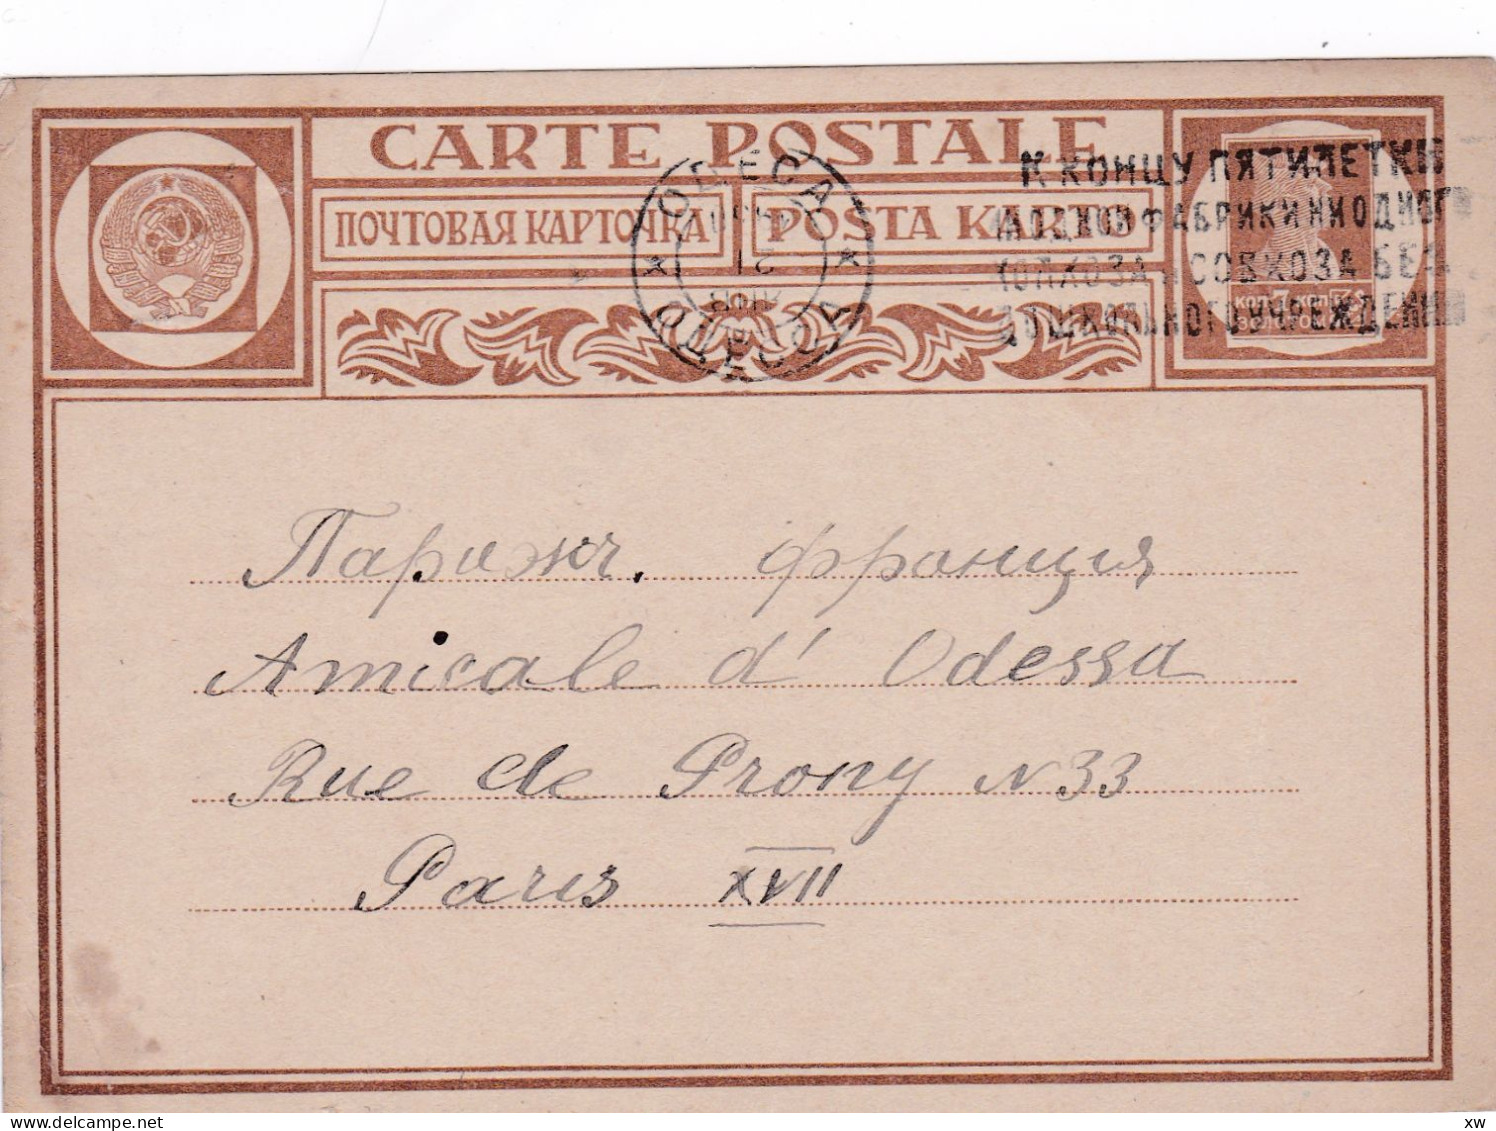 CARTE POSTALE
ПОЧТОВАЯ КАРТОЧКА POSTA KARTO
ОДЕСА
21
ОДЕССА
К КОНЦУ ПЯТИЛЕТКИ
НИ ОДНОЙ ФАБРИКИ НИ ОДНОГО
КОЛХОЗА СОВХОЗА БЕЗ
ДОШКОЛЬНОГО УЧРЕЖДЕНИЯ
КОП. 7 КОП.
Парижъ. Франция
Amicale d' Odessa
Rue de Prony N 33
Paris XVII
delcampe.net
xw